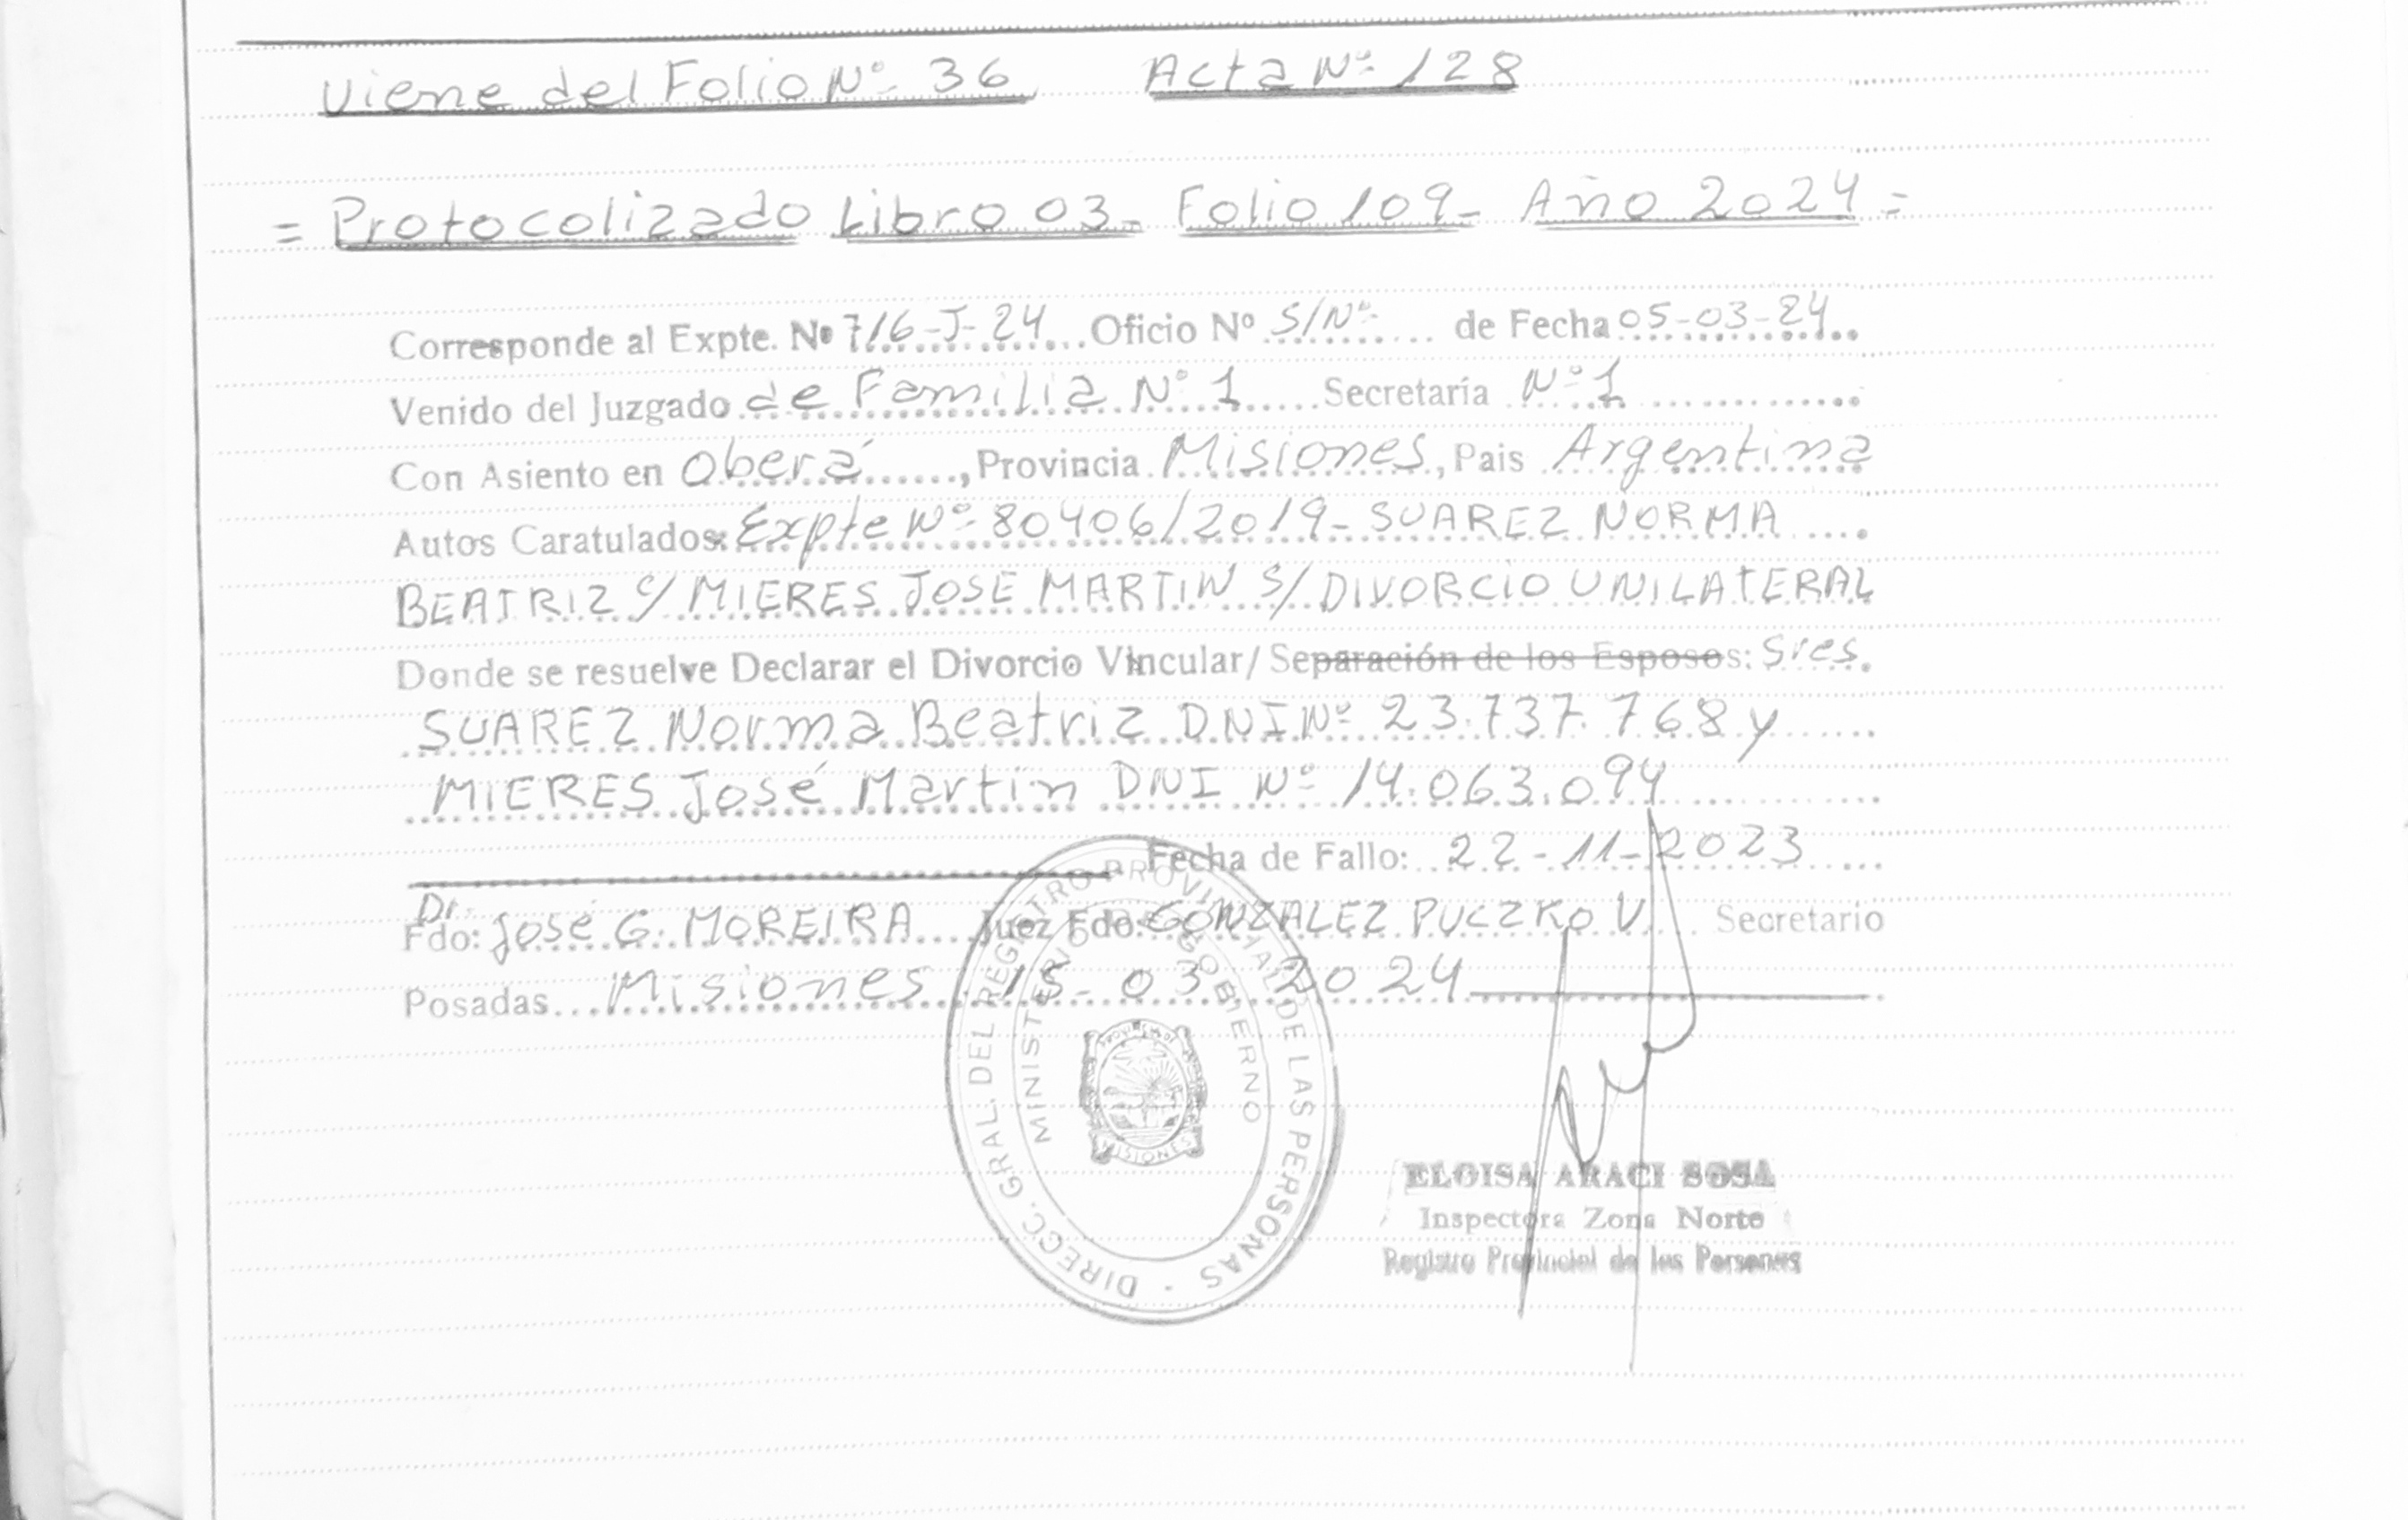 Viene del Folio Nº 36 Acta Nº 128
= Protocolizado Libro 03- Folio 109- Año 2024 =
Corresponde al Expte. Nº 716-J-24 Oficio Nº S/Nº de Fecha 05-03-24
Venido del Juzgado de Familia Nº 1 Secretaría Nº 1
Con Asiento en Oberá, Provincia Misiones, Pais Argentina
Autos Caratulados: Expte Nº 80406/2019- SUAREZ NORMA
BEATRIZ C/ MIERES JOSE MARTIN S/ DIVORCIO UNILATERAL
Donde se resuelve Declarar el Divorcio Vincular/ Separación de los Esposos: Sres.
SUAREZ Norma Beatriz DNI Nº 23.737.768 y
MIERES José Martín DNI Nº 14.063.094
Fecha de Fallo: 22-11-2023
Fdo: Dr. José G. MOREIRA Juez Fdo: GONZALEZ PUCZKO V. Secretario
Posadas Misiones 15-03 2024
DIRECC. GRAL. DEL REGISTRO PROVINCIAL DE LAS PERSONAS
MINISTERIO DE GOBIERNO
MISIONES
ELOISA ARACI SOSA
Inspectora Zona Norte
Registro Provincial de las Personas